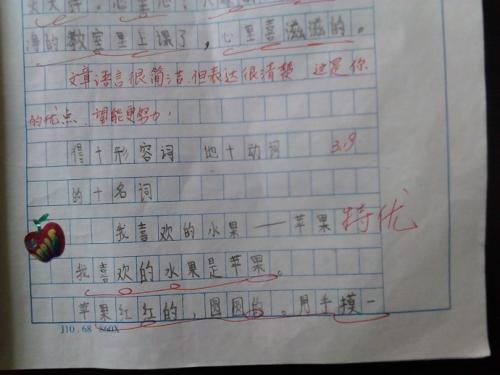 净的教室里上课了，心里喜滋滋的。
文章语言很简洁，但表达很清楚，这是你
的优点，望能更努力！
得十形容词 地十动词 3.9
的十名词
我喜欢的水果——苹果 特优
我喜欢的水果是苹果。
苹果红红的，圆圆的。用手摸一
J10.68